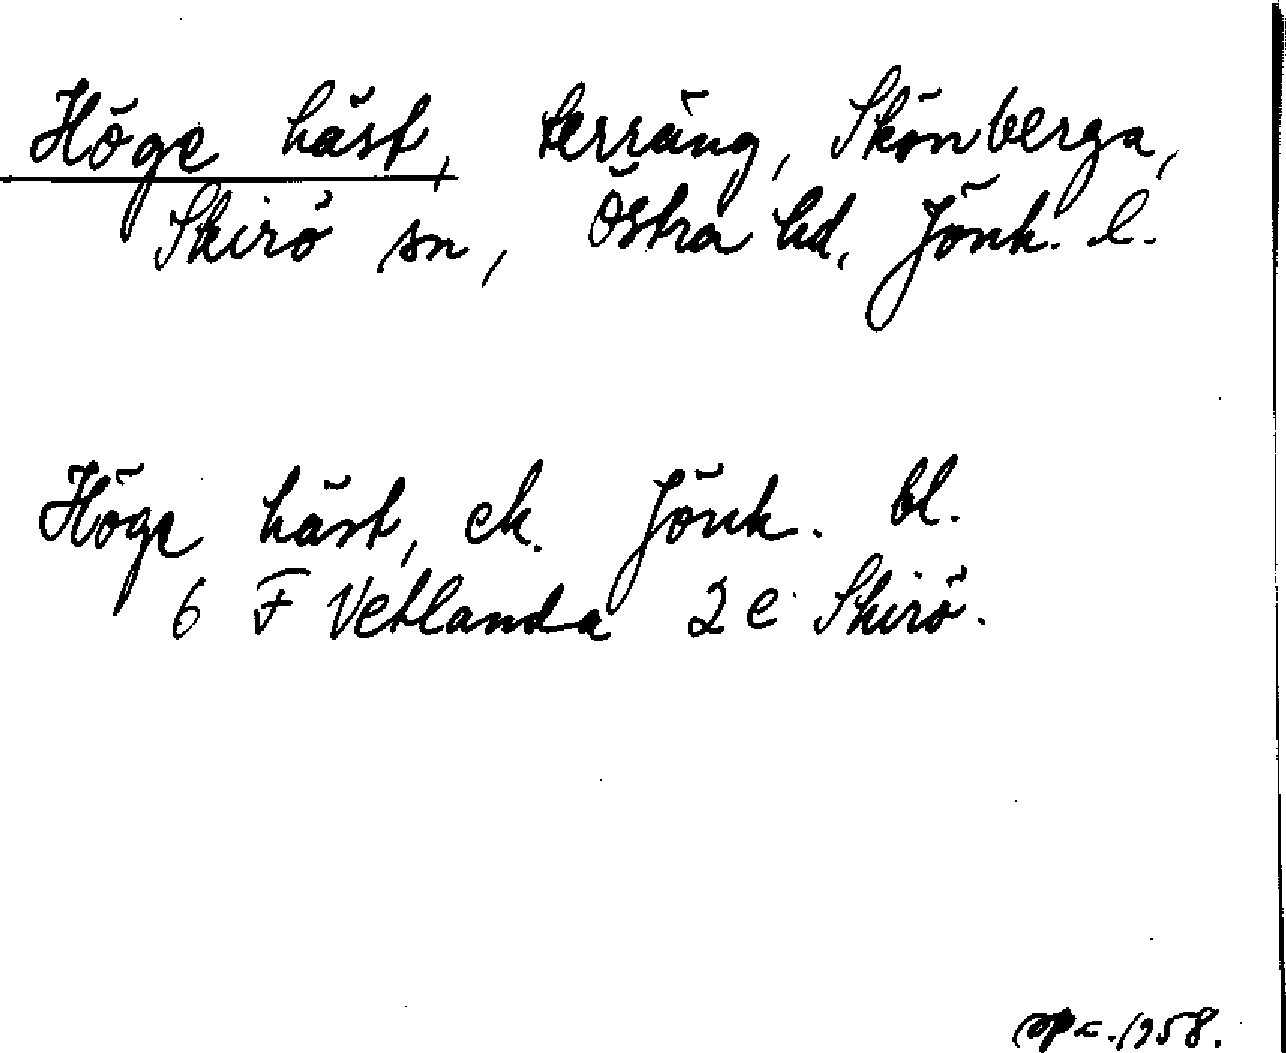 Höge häst, terräng, Skönberga,
Skirö sn, Östra hd, Jönk. l.
Höge häst, ek. Jönk. bl.
6 F Vetlanda 2 e Skirö.
1958.